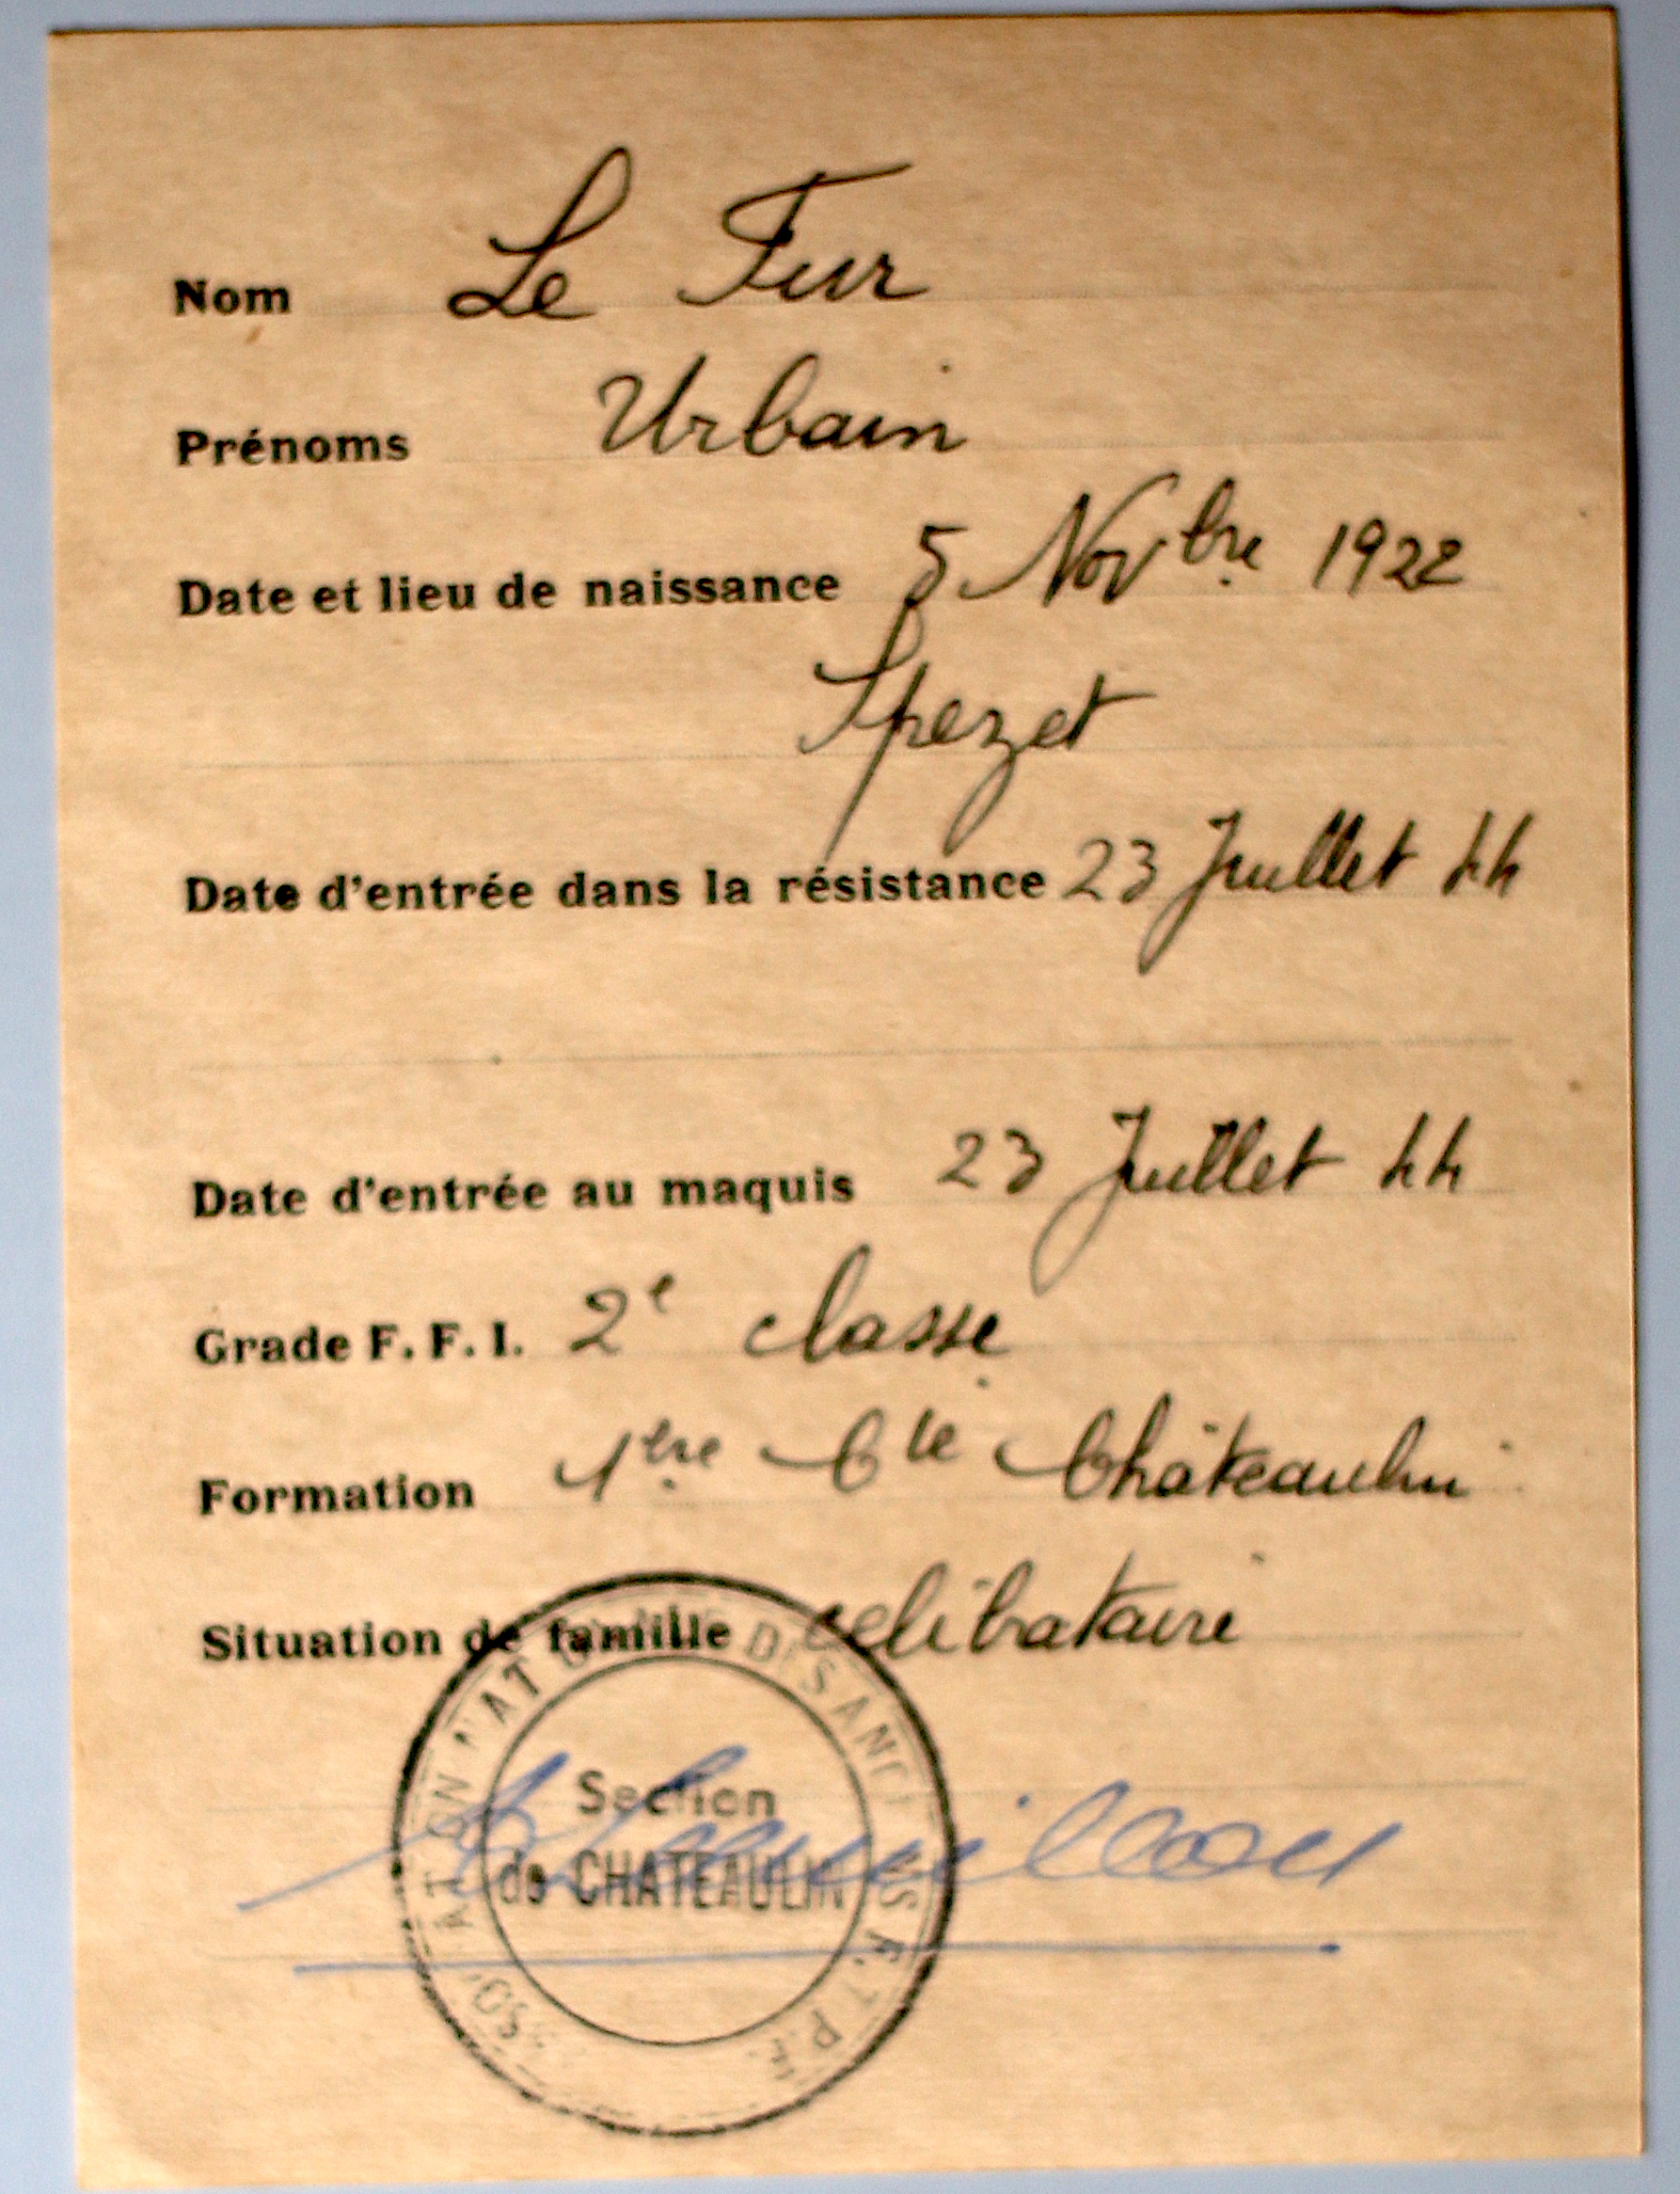 Nom Le Fur
Prénoms Urbain
Date et lieu de naissance 5 Novbre 1922
Spezet
Date d'entrée dans la résistance 23 Juillet 44
Date d'entrée au maquis 23 Juillet 44
Grade F. F. I. 2e classe
Formation 1ère Cie Châteaulin
Situation de famille célibataire
Section
de CHATEAULIN